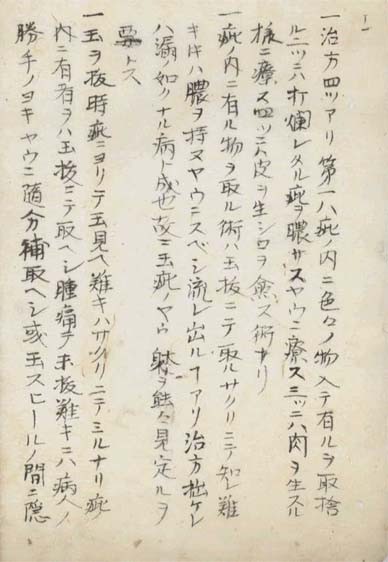 一治方四ツアリ第一ハ疵ノ内ニ色々ノ物入テ有ルヲ取捨
ル二ツニハ打爛レタル疵ヲ膿サスヤウニ療ス三ツニハ肉ヲ生スル
様ニ療ス四ツニハ皮ヲ生シ口ヲ愈ス術ナリ
一疵ノ内ニ有ル物ヲ取ル術ハ玉抜ニテ取ルサクリニテ知レ難
キキハ膿ヲ持ヌヤウニスベシ流レ出ルヿアリ治方拙ケレ
ハ漏ノ如クナル病ト成也故ニ玉疵ノヤウ躰ヲ能々見定ルヲ
要トス
一玉ヲ抜時疵ニヨリテ玉見ヘ難キハサクリニテミルナリ疵ノ
内ニ有者ヲハ玉抜ニテ取ヘシ腫痛テ未抜難キニハ病人ノ
勝手ノヨキヤウニ随分補取ヘシ或玉スヒールノ間ニ隠